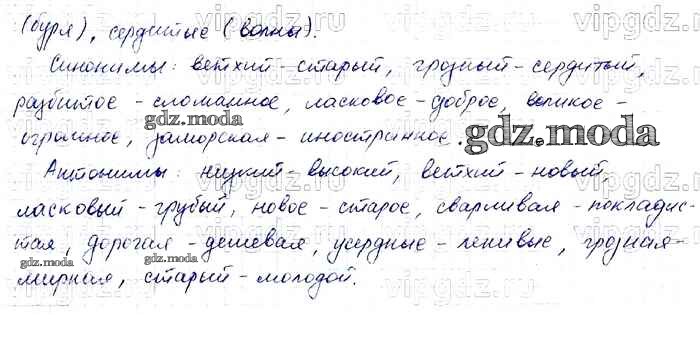 (буря), сердитые (волны).
Синонимы: ветхий - старый, грозный - сердитый,
разбитое - сломанное, ласковое - доброе, великое -
огромное, заморская - иностранное.
Антонимы: низкий - высокий, ветхий - новый,
ласковый - грубый, новое - старое, сварливая - покладис-
тая, дорогая - дешевая, усердные - ленивые, грозная -
мирная, старый - молодой.
gdz.moda
gdz.moda
gdz.moda
gdz.moda
gdz.moda
vipgdz.ru